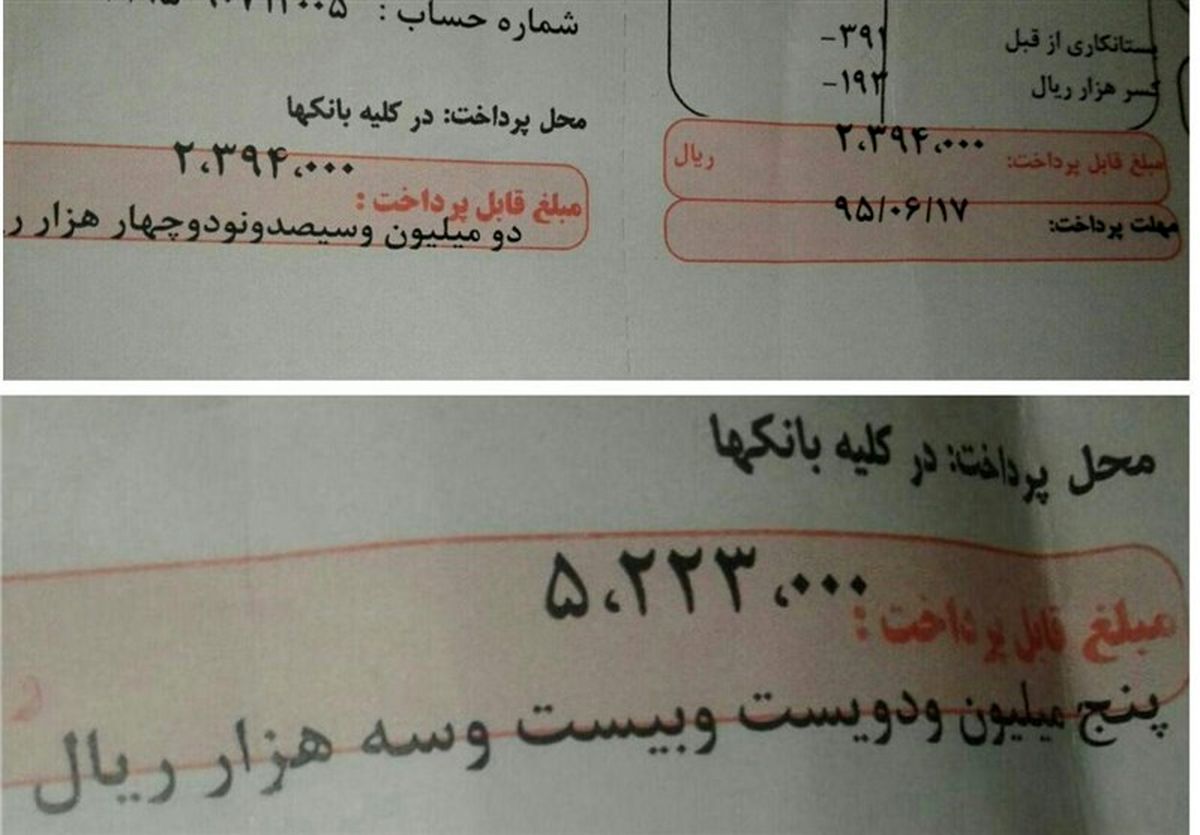 شماره حساب :
محل پرداخت: در کلیه بانکها
۲،۳۹۴،۰۰۰
مبلغ قابل پرداخت :
دو میلیون وسیصدونودوچهار هزار
بستانکاری از قبل -۳۹۱
کسر هزار ریال -۱۹۲
مبلغ قابل پرداخت: ۲،۳۹۴،۰۰۰ ریال
مهلت پرداخت: ۹۵/۰۶/۱۷
محل پرداخت: در کلیه بانکها
۵،۲۲۳،۰۰۰
مبلغ قابل پرداخت :
پنج میلیون ودویست وبیست وسه هزار ریال